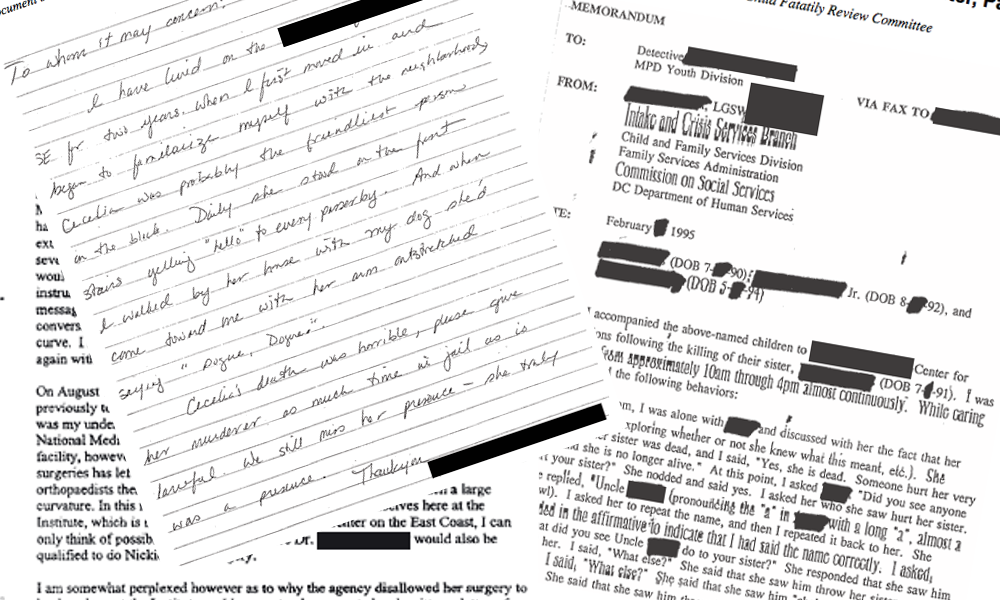 To whom it may concern:
I have lived on the
SE for two years. When I first moved in and
began to familiarize myself with the neighborhood,
Cecelia was probably the friendliest person
on the block. Daily she stood on the front
stairs yelling "hello" to every passerby. And when
I walked by her house with my dog she'd
come toward me with her arm outstretched
saying "Dogue, Dogue".
Cecelia's death was horrible, please give
her murderer as much time in jail as is
lawful. We still miss her presence – she truly
was a presence. Thank you
ha
ext
seve
woul
instru
messag
convers
curve. I
again with
On August
previously
was my unde
National Medi
facility, howev
surgeries has let
orthopaedists the
curvature. In this
Institute, which is
only think of possib
qualified to do Nicki
a large
here at the
on the East Coast, I can
would also be
I am somewhat perplexed however as to why the agency disallowed her surgery to
Child Fatatily Review Committee
MEMORANDUM
TO:
Detective
MPD Youth Division
FROM:
VIA FAX TO
, LGSW
Intake and Crisis Services Branch
Child and Family Services Division
Family Services Administration
Commission on Social Services
DC Department of Human Services
TE:
February 1995
(DOB 7- -90); Jr. (DOB 8- -92), and
(DOB 5- -94)
accompanied the above-named children to Center for
ons following the killing of their sister, (DOB 7- -91). I was
from approximately 10am through 4pm almost continuously. While caring
the following behaviors:
I was alone with and discussed with her the fact that her
xploring whether or not she knew what this meant, etc.). She
r sister was dead, and I said, "Yes, she is dead. Someone hurt her very
d she is no longer alive." At this point, I asked "Did you see anyone
t your sister?" She nodded and said yes. I asked her who she saw hurt her sister.
e replied, "Uncle (pronouncing the "a" in with a long "a", almost a
wl). I asked her to repeat the name, and then I repeated it back to her. She
ded in the affirmative to indicate that I had said the name correctly. I asked,
at did you see Uncle do to your sister?" She responded that she saw him
her. I said, "What else?" She said that she saw him throw her sister
I said, "What else?" She said that she saw him
She said that she saw him